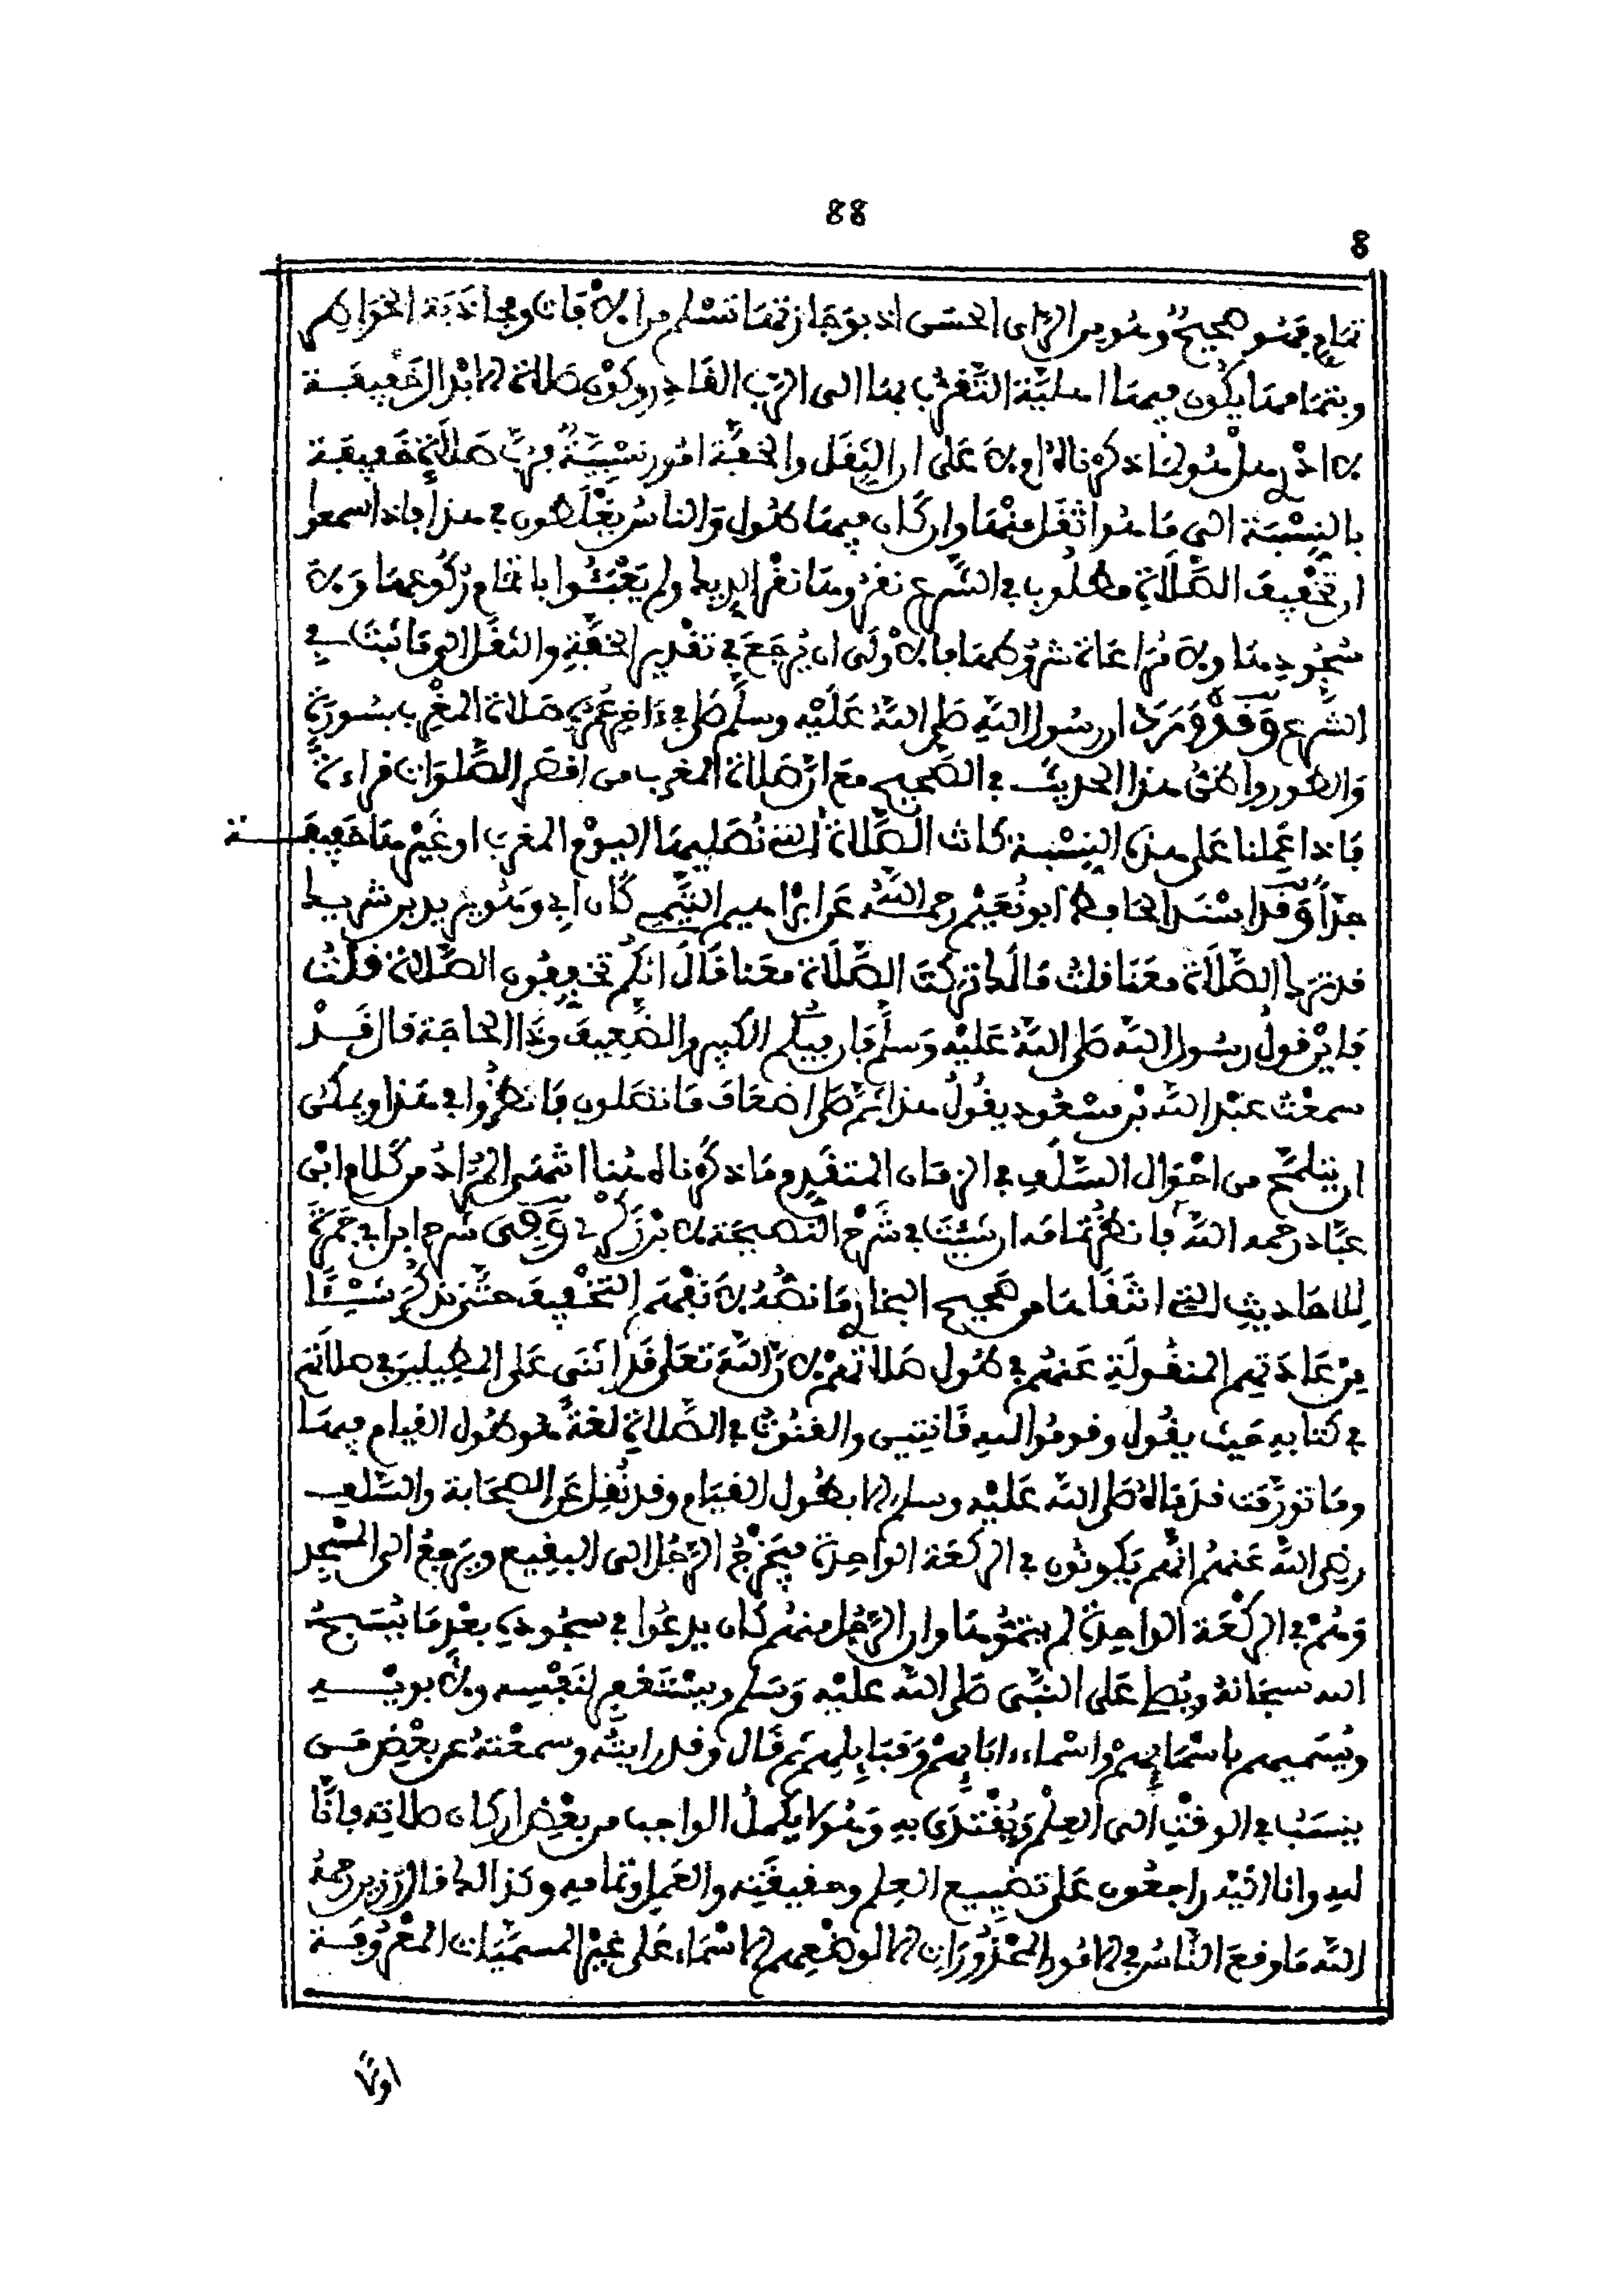 88
8
تمام فهو صحيح وهو من الرأي الحسن اذ بوجازتها تسلم من الآفات ومجاذبة الخواطر
وبتمامها يكون فيها اهلية التقرب بها الى الرب القادر وكون صلاة الابدال خفيفة
لا اشكال هو لما ذكرناه اولا على ان الثقل والخفة امور نسبية فرب صلاة خفيفة
بالنسبة الى ما هو اثقل منها وان كان فيها طول والناس يغلطون في هذا فاذا سمعوا
ان تخفيف الصلاة مطلوب في الشرع نقروها نقر الديك ولم يعبئوا باتمام ركوعها ولا
سجودها ولا مراعاة شروطها فالاولى ان يرجع في تقدير الخفة والثقل الى ما ثبت في
الشرع وقد ورد ان رسول الله صلى الله عليه وسلم صلى في ءاخر عمره صلاة المغرب بسورة
والطور والحديث هذا الحديث في الصحيح مع ان صلاة المغرب من اقصر الصلوات قراءة
فاذا عملنا على هذه النسبة كانت الصلاة التي نصليها اليوم المغرب او غيرها خفيفة
جدا وقد اسند الحافظ ابو نعيم رحمه الله عن ابراهيم التيمي كان ابي وهو يزيد بن شريك
قد ترك الصلاة معنا قلت مالك تركت الصلاة معنا قال انكم تخففون الصلاة قلت
فاين قول رسول الله صلى الله عليه وسلم فان فيكم الكبير والضعيف وذا الحاجة قال قد
سمعت عبد الله بن مسعود يقول هذا ثم صلى اضعاف ما تصلون فانظروا في هذا ويمكن
ان يتلمح من احوال السلف في الزمان المتقدم وما ذكرناه هنا اشهر المراد من كلام ابن
عباد رحمه الله فانظر تمامه ان شئت في شرح النصيحة لابن زكري وفي شرح ابن ابي جمرة
للاحاديث التي انتقاها من صحيح البخاري ما نصه لا نفهم التخفيف حتى نذكر شيئا
من عادتهم المنقولة عنهم في طول صلاتهم لان الله تعلى قد اثنى على المطيلين في صلاتهم
في كتابه حيث يقول وقوموا لله قانتين والقنوت في الصلاة لغة هو طول القيام فيها
وما تورمت قدماه صلى الله عليه وسلم الا بطول القيام وقد نقل عن الصحابة والسلف
رضي الله عنهم انهم يكونون في الركعة الواحدة فيخرج الرجل الى البقيع ويرجع الى المسجد
وهم في الركعة الواحدة لم يتموها وان الرجل منهم كان يدعوا في سجوده بعد ما يسبح
الله سبحانه ويصلي على النبي صلى الله عليه وسلم ويستغفر لنفسه ولأبويه
ويسميهم باسمائهم واسماء ءابائهم وقبائلهم ثم قال وقد رايته وسمعته عن بعض من
ينسب في الوقت الى العلم ويقتدى به وهو لا يكمل الواجب من بعض اركان صلاته فانا
لله وانا اليه راجعون على تضييع العلم وحقيقته والعمل وتمامه وكذالك قال رزين رحمه
الله ما وقع الناس في الامور المحذورات الا لوضعهم الاسماء على غير المسميات المعروفة
اولا